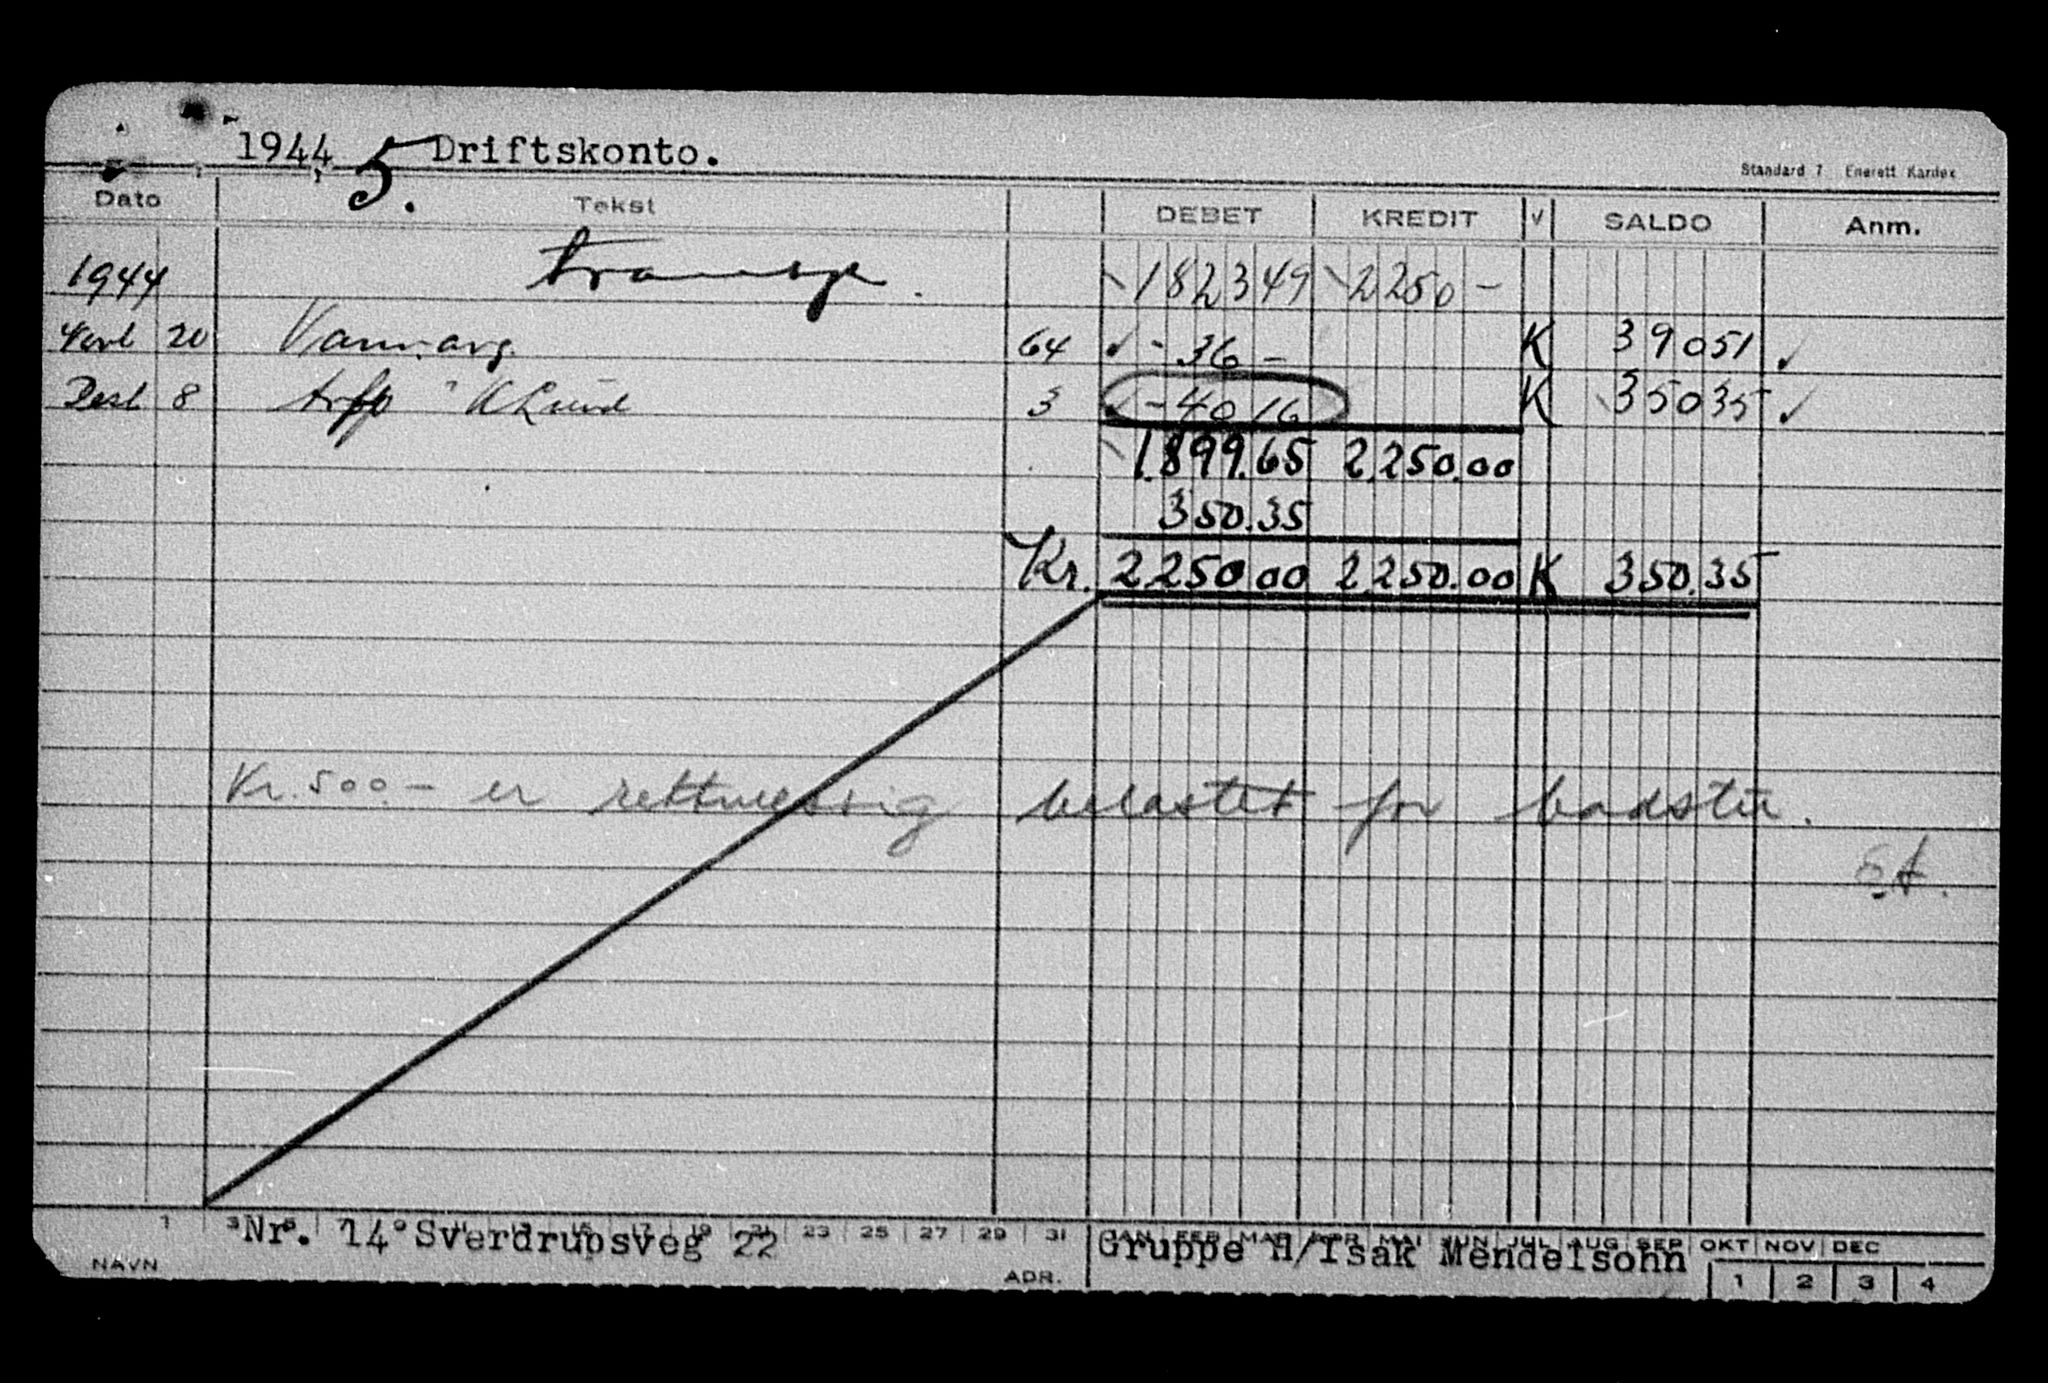 1944, 5. Driftskonto.
Standard 7 Enerett Kardex
Dato Tekst DEBET KREDIT V SALDO Anm.
1944 transp. 182349 2250 -
20 Vann.avg. 64 - 36 - K 39051
Des 8 K Lund 3 - 4016 K 35035
1.899.65 2.250.00
350.35
Kr. 2250.00 2.250.00 K 350.35
Kr. 500.- er rettmessig belastet for badstu.
Nr. 14° Sverdrupsveg 22 Gruppe H/Isak Mendelsohn
1 3 5 7 11 13 15 17 19 21 23 25 27 29 31 JAN FEB MAR APR MAI JUN JUL AUG SEP OKT NOV DEC
NAVN ADR. 1 2 3 4